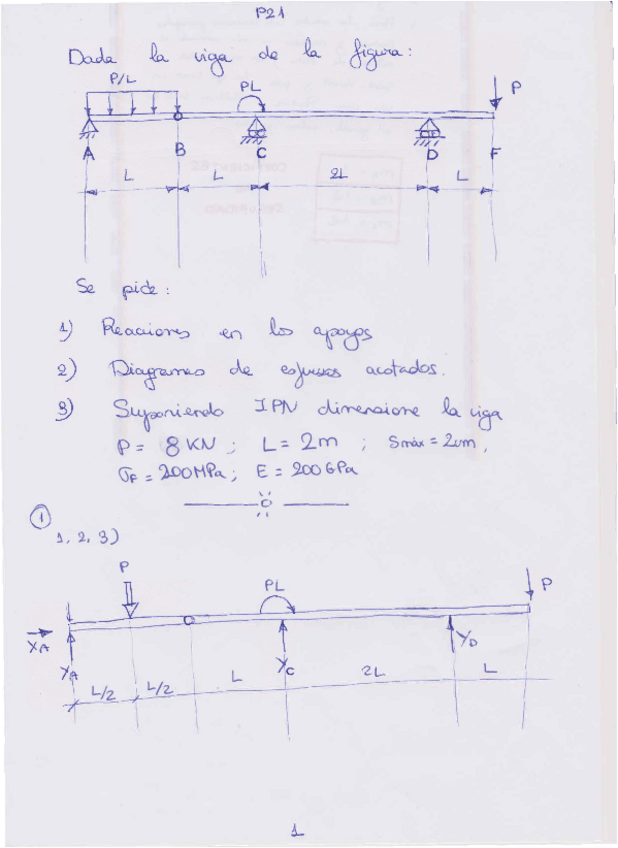 P21
Dada la viga de la figura:
P/L PL P
A B C D F
L L 2L L
Se pide:
1) Reaciones en los apoyos
2) Diagramas de esfuerzos acotados.
3) Suponiendo IPN dimensione la viga
P = 8 KN ; L = 2 m ; Smáx = 2cm,
σF = 200 MPa ; E = 200 GPa
1
1, 2, 3)
P PL P
XA YA YC YD
L/2 L/2 L 2L L
1